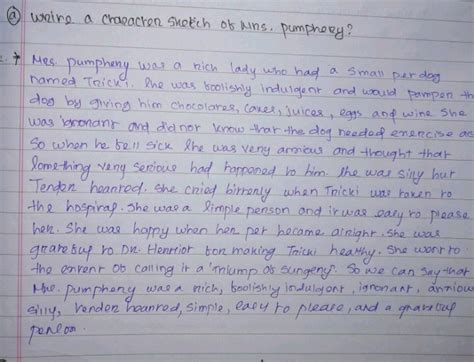 @ write a character sketch of Mrs. pumphery?
→ Mrs. pumphery was a rich lady who had a small pet dog
named Tricki. She was foolishly indulgent and would pamper the
dog by giving him chocolates, cakes, juices, eggs and wine. She
was ignorant and did not know that the dog needed exercise as
So when he fell sick she was very anxious and thought that
Something very serious had happened to him. She was silly but
Tender hearted. She cried bitterly when Tricki was taken to
the hospital. She was a simple person and it was easy to please
her. She was happy when her pet became alright. She was
grateful to Dr. Herriot for making Tricki healthy. She went to
the extent of calling it a 'triump of surgery'. So we can say that
Mrs. pumphery was a rich, foolishly indulgent, ignorant, anxiou
silly, tender hearted, simple, easy to please, and a grateful
person.